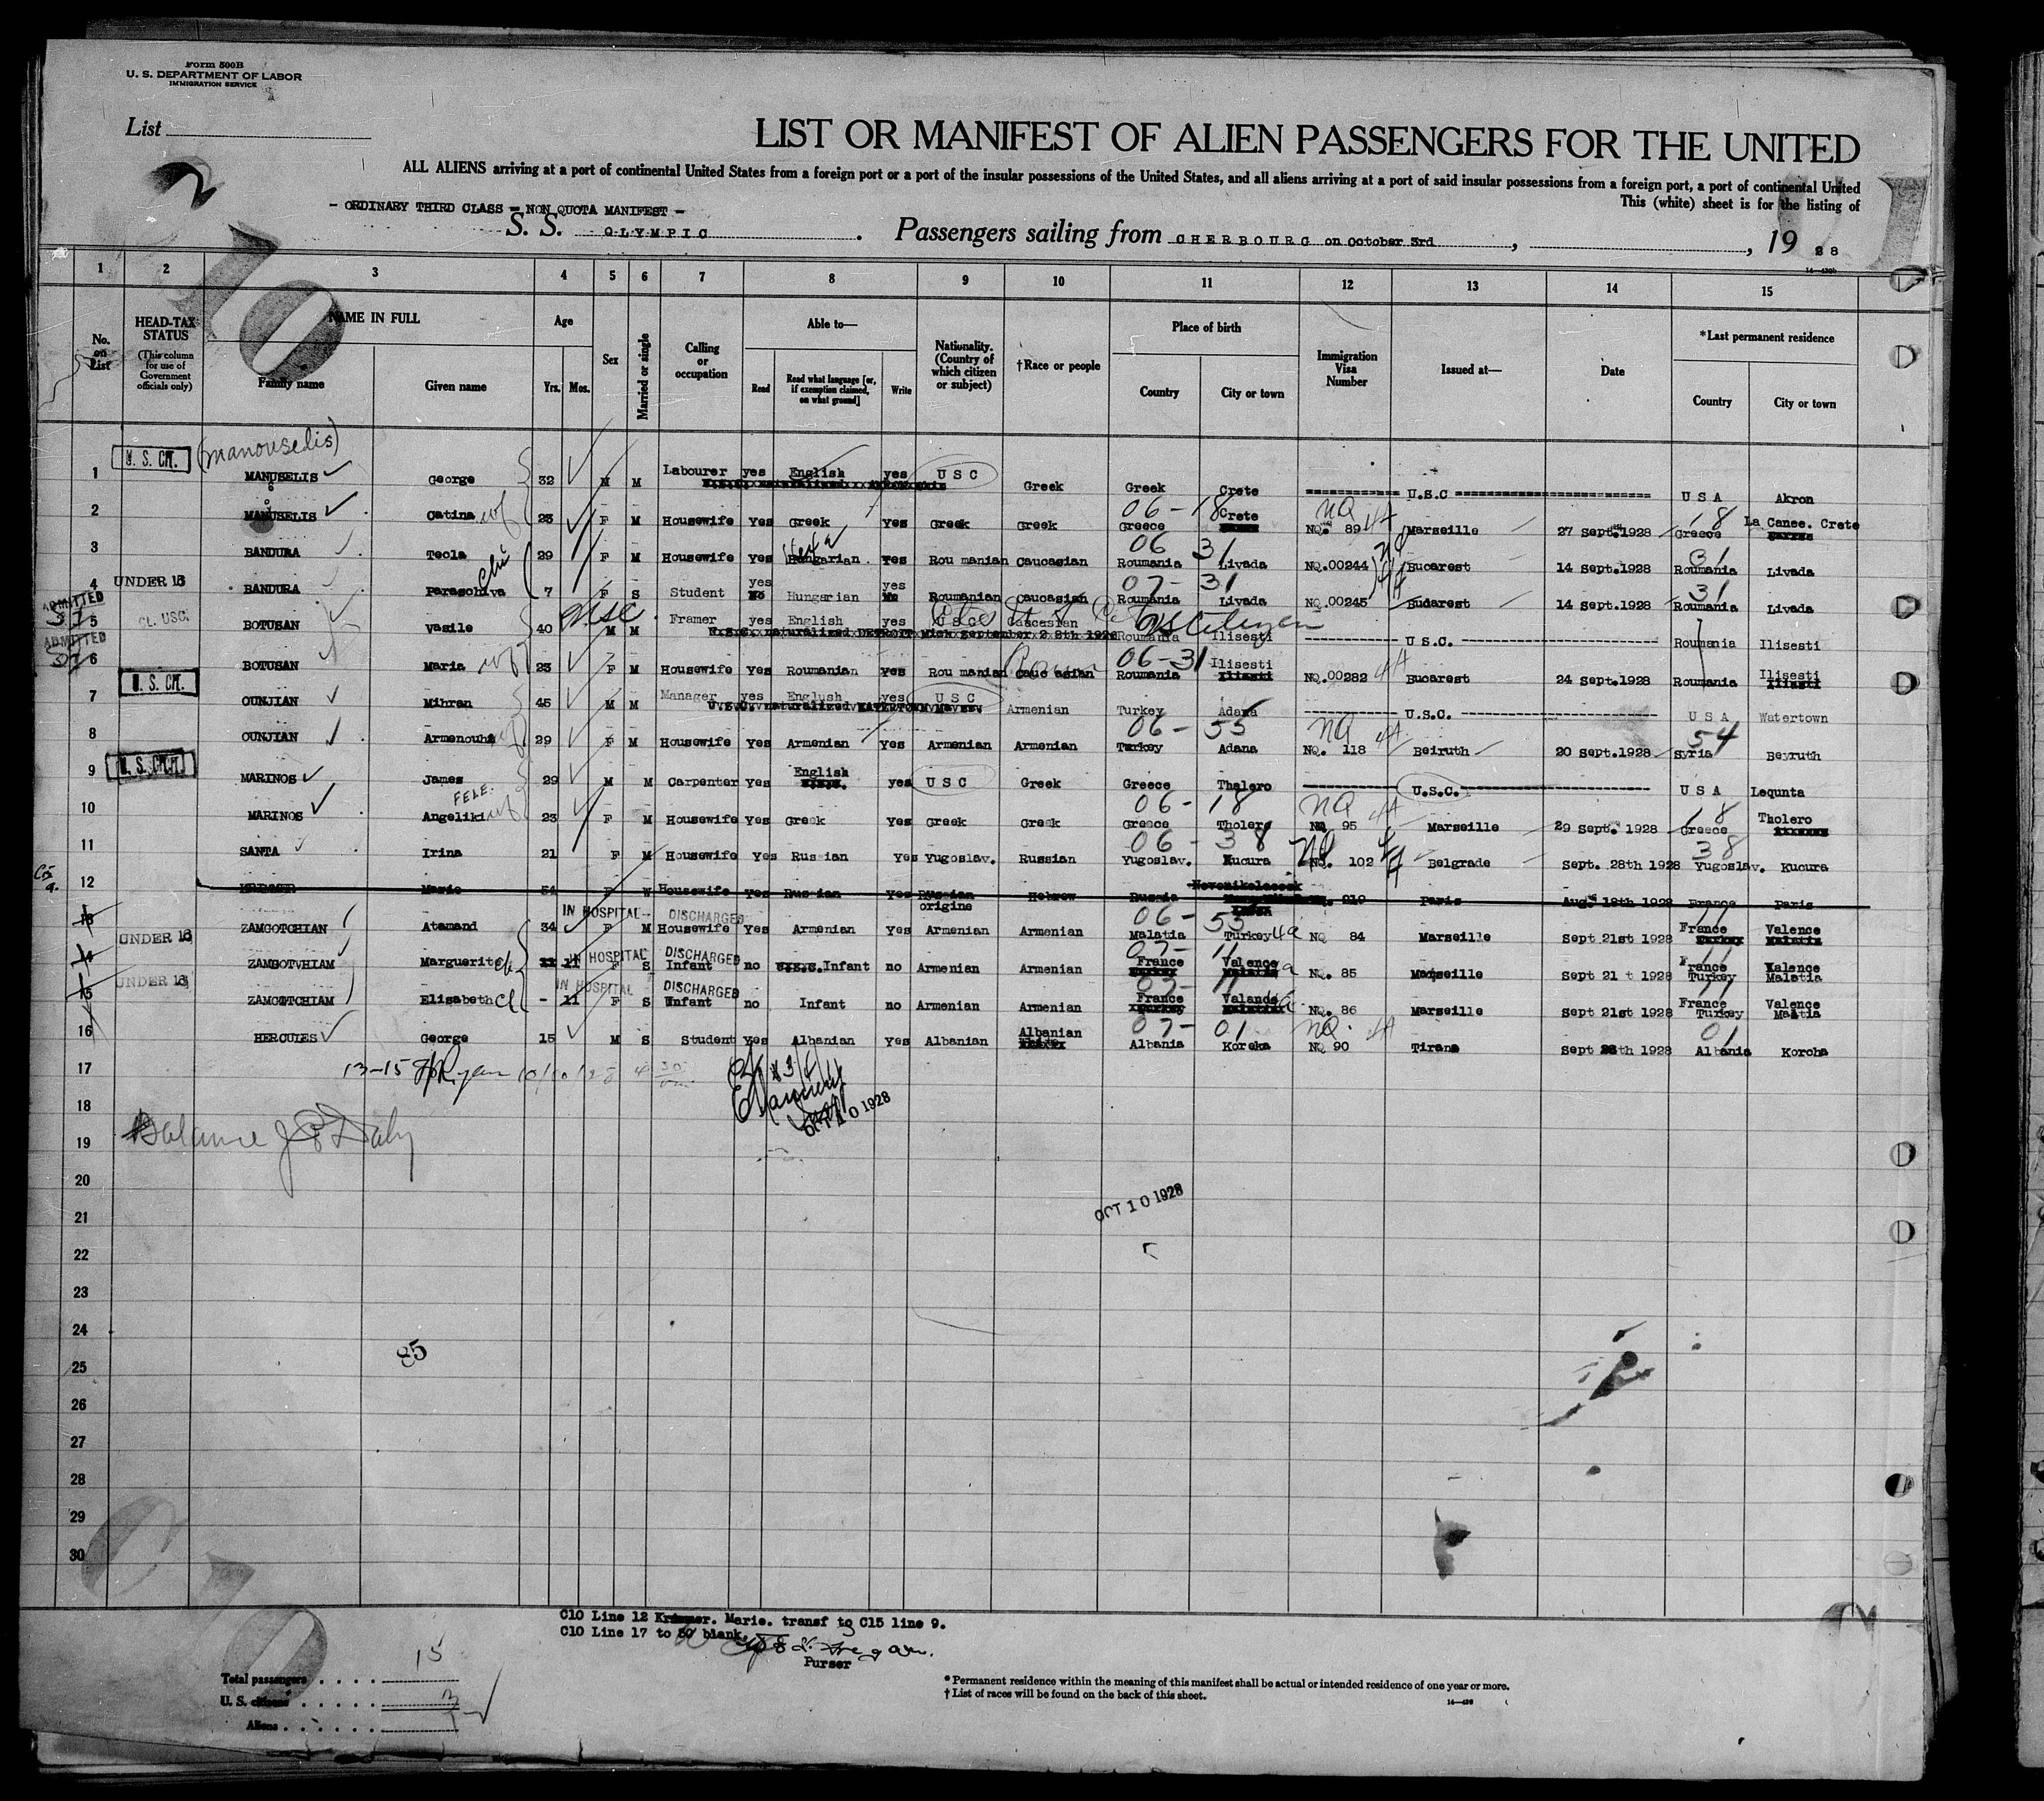 Form 500B
U. S. DEPARTMENT OF LABOR
IMMIGRATION SERVICE
List
2
LIST OR MANIFEST OF ALIEN PASSENGERS FOR THE UNITED
ALL ALIENS arriving at a port of continental United States from a foreign port or a port of the insular possessions of the United States, and all aliens arriving at a port of said insular possessions from a foreign port, a port of continental United
This (white) sheet is for the listing of
- ORDINARY THIRD CLASS - NON QUOTA MANIFEST -
S. S. OLYMPIC. Passengers sailing from CHERBOURG on October 3rd, , 19 28
10
1 2 3 4 5 6 7 8 9 10 11 12 13 14 15
No. on List
HEAD-TAX STATUS (This column for use of Government officials only)
NAME IN FULL Family name Given name
Age Yrs. Mos.
Sex
Married or single
Calling or occupation
Able to— Read Read what language [or, if exemption claimed, on what ground] Write
Nationality. (Country of which citizen or subject)
†Race or people
Place of birth Country City or town
Immigration Visa Number
Issued at—
Date
*Last permanent residence Country City or town
(Manouselis)
1 U. S. CIT. MANUSELIS George 32 M M Labourer yes English yes U S C Greek Greek Crete U.S.C U S A Akron
06-18 NQ
2 MANUSELIS Catina wf 23 F M Housewife Yes Greek Yes Greek Greek Greece Crete NQ. 89 4A Marseille 27 Sept.1928 Greece La Canee. Crete
06 31
3 BANDURA Tecla 29 F M Housewife Yes Hungarian Yes Roumanian Caucasian Roumania Livada NQ.00244 Bucarest 14 Sept.1928 Roumania Livada
07-31
4 UNDER 16 BANDURA Paraschiva 7 F S Student yes Hungarian yes Roumanian Caucasian Roumania Livada NQ.00245 Budarest 14 Sept.1928 Roumania Livada
ADMITTED
5 CL. USC. BOTUSAN Vasile 40 M M Framer yes English yes U S C Caucasian Roumania Ilisesti U.S.C. Roumania Ilisesti
U.S.C. naturalized DETROIT Mich September 2 8th 1926
USC
US Citizen
ADMITTED
06-31
6 BOTUSAN Maria wf 23 F M Housewife Yes Roumanian yes Roumanian Caucasian Roumania Ilisesti NQ.00282 4A Bucarest 24 Sept.1928 Roumania Ilisesti
7 U. S. CIT. OUNJIAN Mihran 45 M M Manager yes Englush yes U S C Armenian Turkey Adana U.S.C. U S A Watertown
06-53 NQ 54
8 OUNJIAN Armenouhi 29 F M Housewife Yes Armenian Yes Armenian Armenian Turkey Adana NQ. 118 4A Beiruth 20 Sept.1928 Syria Beyruth
9 U. S. CIT. MARINOS James 29 M M Carpenter Yes English yes U S C Greek Greece Thalero U.S.C. U S A Lequnta
FELE.
06-18 NQ 18
10 MARINOS Angeliki wf 23 F M Housewife Yes Greek Yes Greek Greek Greece Tholero NQ 95 4A Marseille 29 Sept. 1928 Greece Tholero
06-38 38
11 SANTA Irina 21 F M Housewife Yes Russian Yes Yugoslav. Russian Yugoslav. Kucura NQ. 102 Belgrade Sept. 28th 1928 Yugoslav. Kucura
12 Marie 51 F W Housewife yes Russian Yes Russian origine Hebrew Russia Novonikolaeesk 219 Paris Aug. 18th 1928 France Paris
IN HOSPITAL DISCHARGED 06-53 11
13 ZAMGOTCHIAN Atamand 34 F M Housewife Yes Armenian Yes Armenian Armenian Malatia Turkey NQ 84 Marseille Sept 21st 1928 France Valence
IN HOSPITAL DISCHARGED 07-11 11
14 UNDER 16 ZAMGOTVHIAM Marguerite ch 11 F S Infant no Infant no Armenian Armenian France Valence NQ. 85 Marseille Sept 21 t 1928 France Turkey Valence Malatia
IN HOSPITAL DISCHARGED 07-11 11
15 UNDER 16 ZAMGOTCHIAM Elisabeth ch - 11 F S Unfant no Infant no Armenian Armenian France Valande NQ. 86 Marseille Sept 21st 1928 France Turkey Valence Maatia
07-01 NQ. 4A 01
16 HERCULES George 15 M S Student yes Albanian Yes Albanian Albanian Albania Koreka NQ 90 Tirana Sept 28th 1928 Albania Korcha
17 13-15 10/10/28
OCT 10 1928
18
19 Balance J Daly
20
OCT 10 1928
21
22
23
24
85
25
26
27
28
29
30
C10
C10 Line 12 Krimmer. Marie. transf to C15 line 9.
C10 Line 17 to 30 blank.
Purser
Total passengers 15
U. S. citizens 3
Aliens
* Permanent residence within the meaning of this manifest shall be actual or intended residence of one year or more.
† List of races will be found on the back of this sheet.